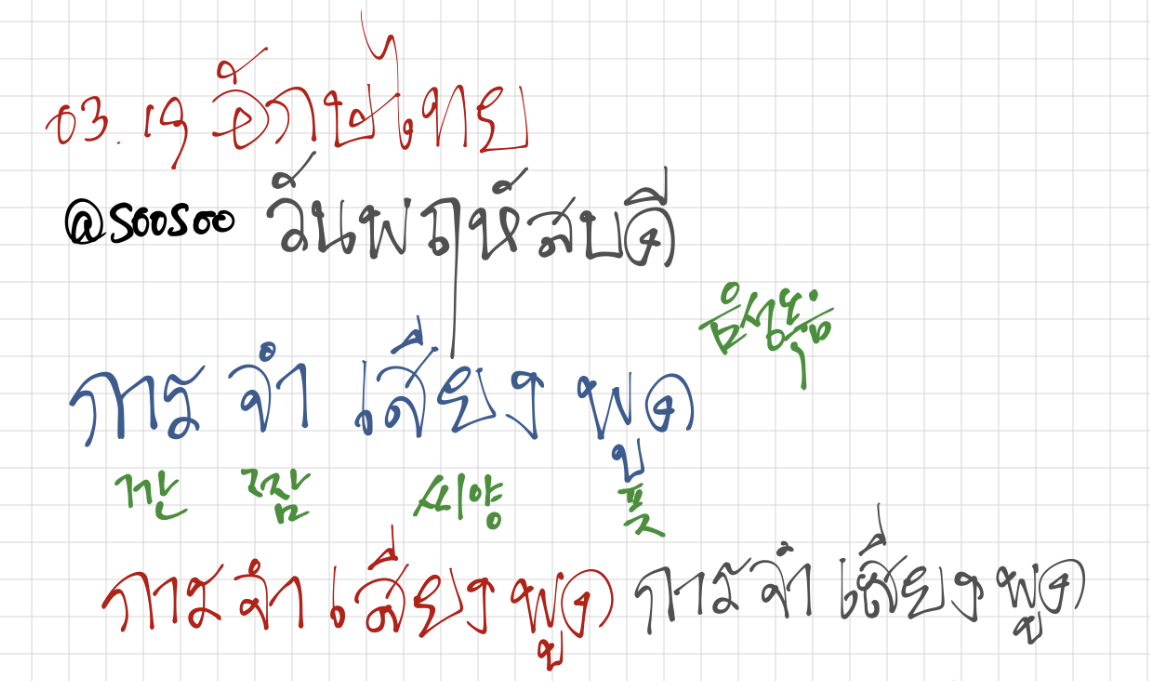 03.19 อักษไทย
@soosoo วันพฤหัสบดี
음성
การ จำ เสียง พูด
깐 짬 씨양 풋
การจำเสียงพูด การจำเสียงพูด